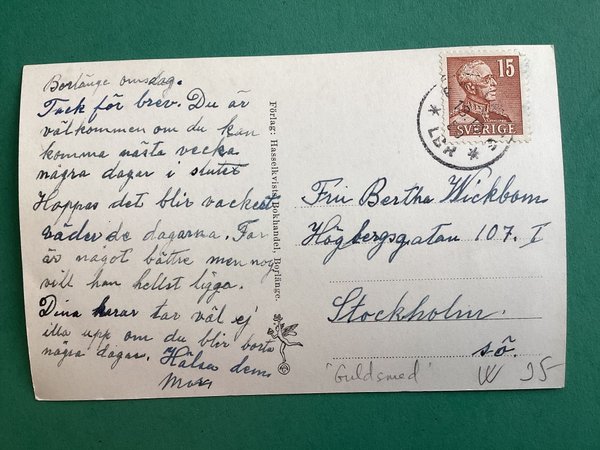 Borlänge onsdag.
Tack för brev. Du är
välkommen om du kan
komma nästa vecka
några dagar i slutet
Hoppas det blir vackert
väder de dagarna. Far
är något bättre men nog
vill han helst ligga.
Dina karar tar väl ej
illa upp om du blir borta
några dagar. Hälsa dem
Förlag: Hasselkvists Bokhandel, Borlänge.
15
SVERIGE
LBR
Fru Bertha Wickbom
Högbergsgatan 107. I
Stockholm.
sö.
"Guldsmed"
W 35-